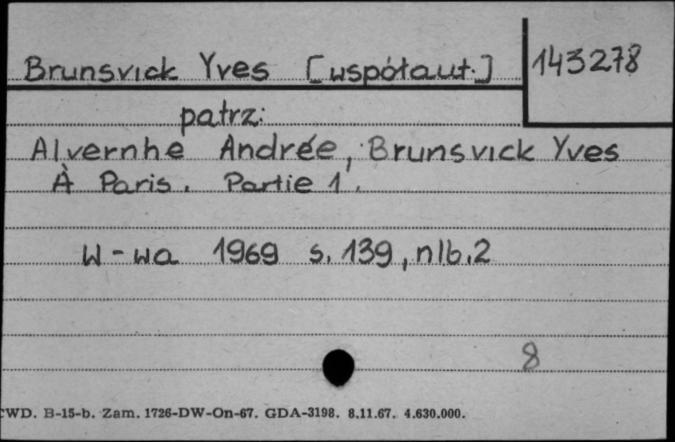 Brunsvick Yves [współaut.] 143278
patrz:
Alvernhe Andrée, Brunsvick Yves
À Paris. Partie 1.
W-wa 1969 s. 139, nlb. 2
8
CWD. B-15-b. Zam. 1726-DW-On-67. GDA-3198. 8.11.67. 4.630.000.